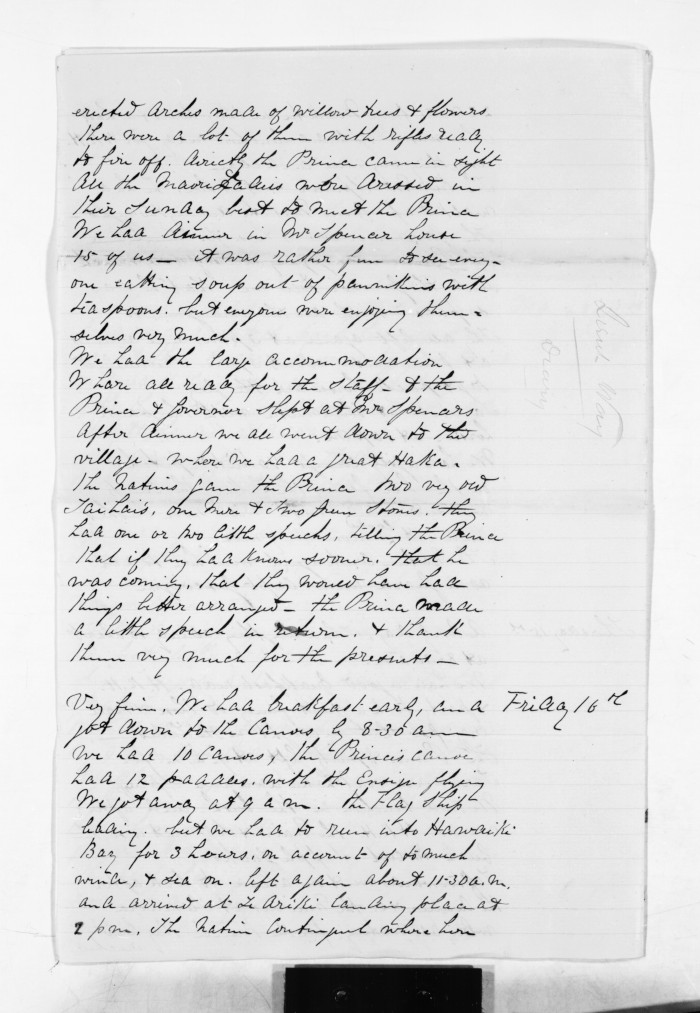 erected arches made of willow trees & flowers
there were a lot of them with rifles ready
to fire off. directly the Prince came in sight
All the Maori Ladies were dressed in
their Sunday best to meet the Prince
We had dinner in Mr Spencer house
15 of us - it was rather fun to see every-
one eatting soup out of pannikins with
teaspoons. but everyone were enjoying them-
selves very much.
We had the large accommodation
Whare all ready for the staff - & the
Prince & Governor slept at Mr Spencers
After dinner we all went down to the
village - where we had a great Haka.
the natives gave the Prince two very old
Taihais, one Mere & two green stones. they
had one or two little speechs, telling the Prince
that if they had known sooner. that he
was coming, that they would have had
things better arranged - the Prince made
a little speech in return. & thank
them very much for the presents -
Friday 16th
Very fine. We had breakfast early, and
got down to the Canoes by 8-30 am
we had 10 canoes, the Princes canoe
had 12 paddles. with the Ensign flying
We got away at 9 am. the Flag Ship
leading. but we had to run into Hawaiki
Bay for 3 hours. on account of to much
wind, & sea on. left again about 11-30 a.m.
and arrived at Te Ariki landing place at
2 pm. The Native Contingent where here
Diary